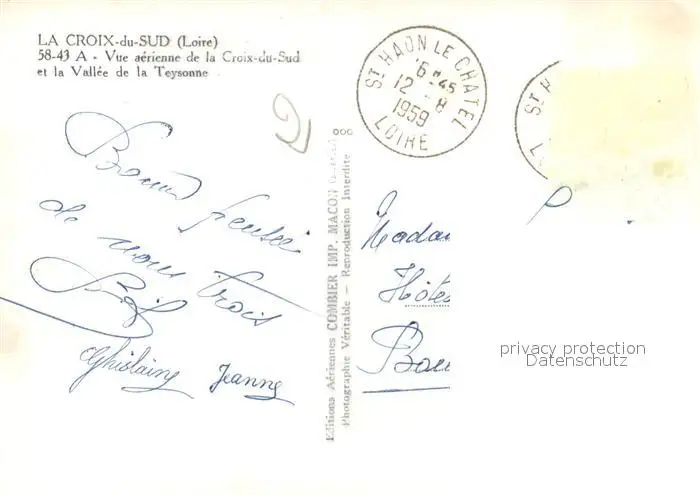 LA CROIX-du-SUD (Loire)
58-43 A - Vue aérienne de la Croix-du-Sud
et la Vallée de la Teysonne
ST HAON LE CHATEL
12 - 8
1959
LOIRE
Bonne pensée
de nous trois
Ghislaine Jeanne
Editions Aériennes COMBIER IMP. MACON
Photographie Véritable - Reproduction Interdite
Madam
Hôte
Bou
privacy protection
Datenschutz